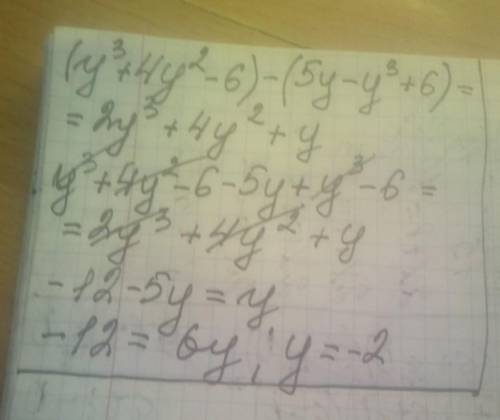 (y³+4y²-6)-(5y-y³+6)=
=2y³+4y²+y
y³+4y²-6-5y+y³-6=
=2y³+4y²+y
-12-5y=y
-12=6y; y=-2